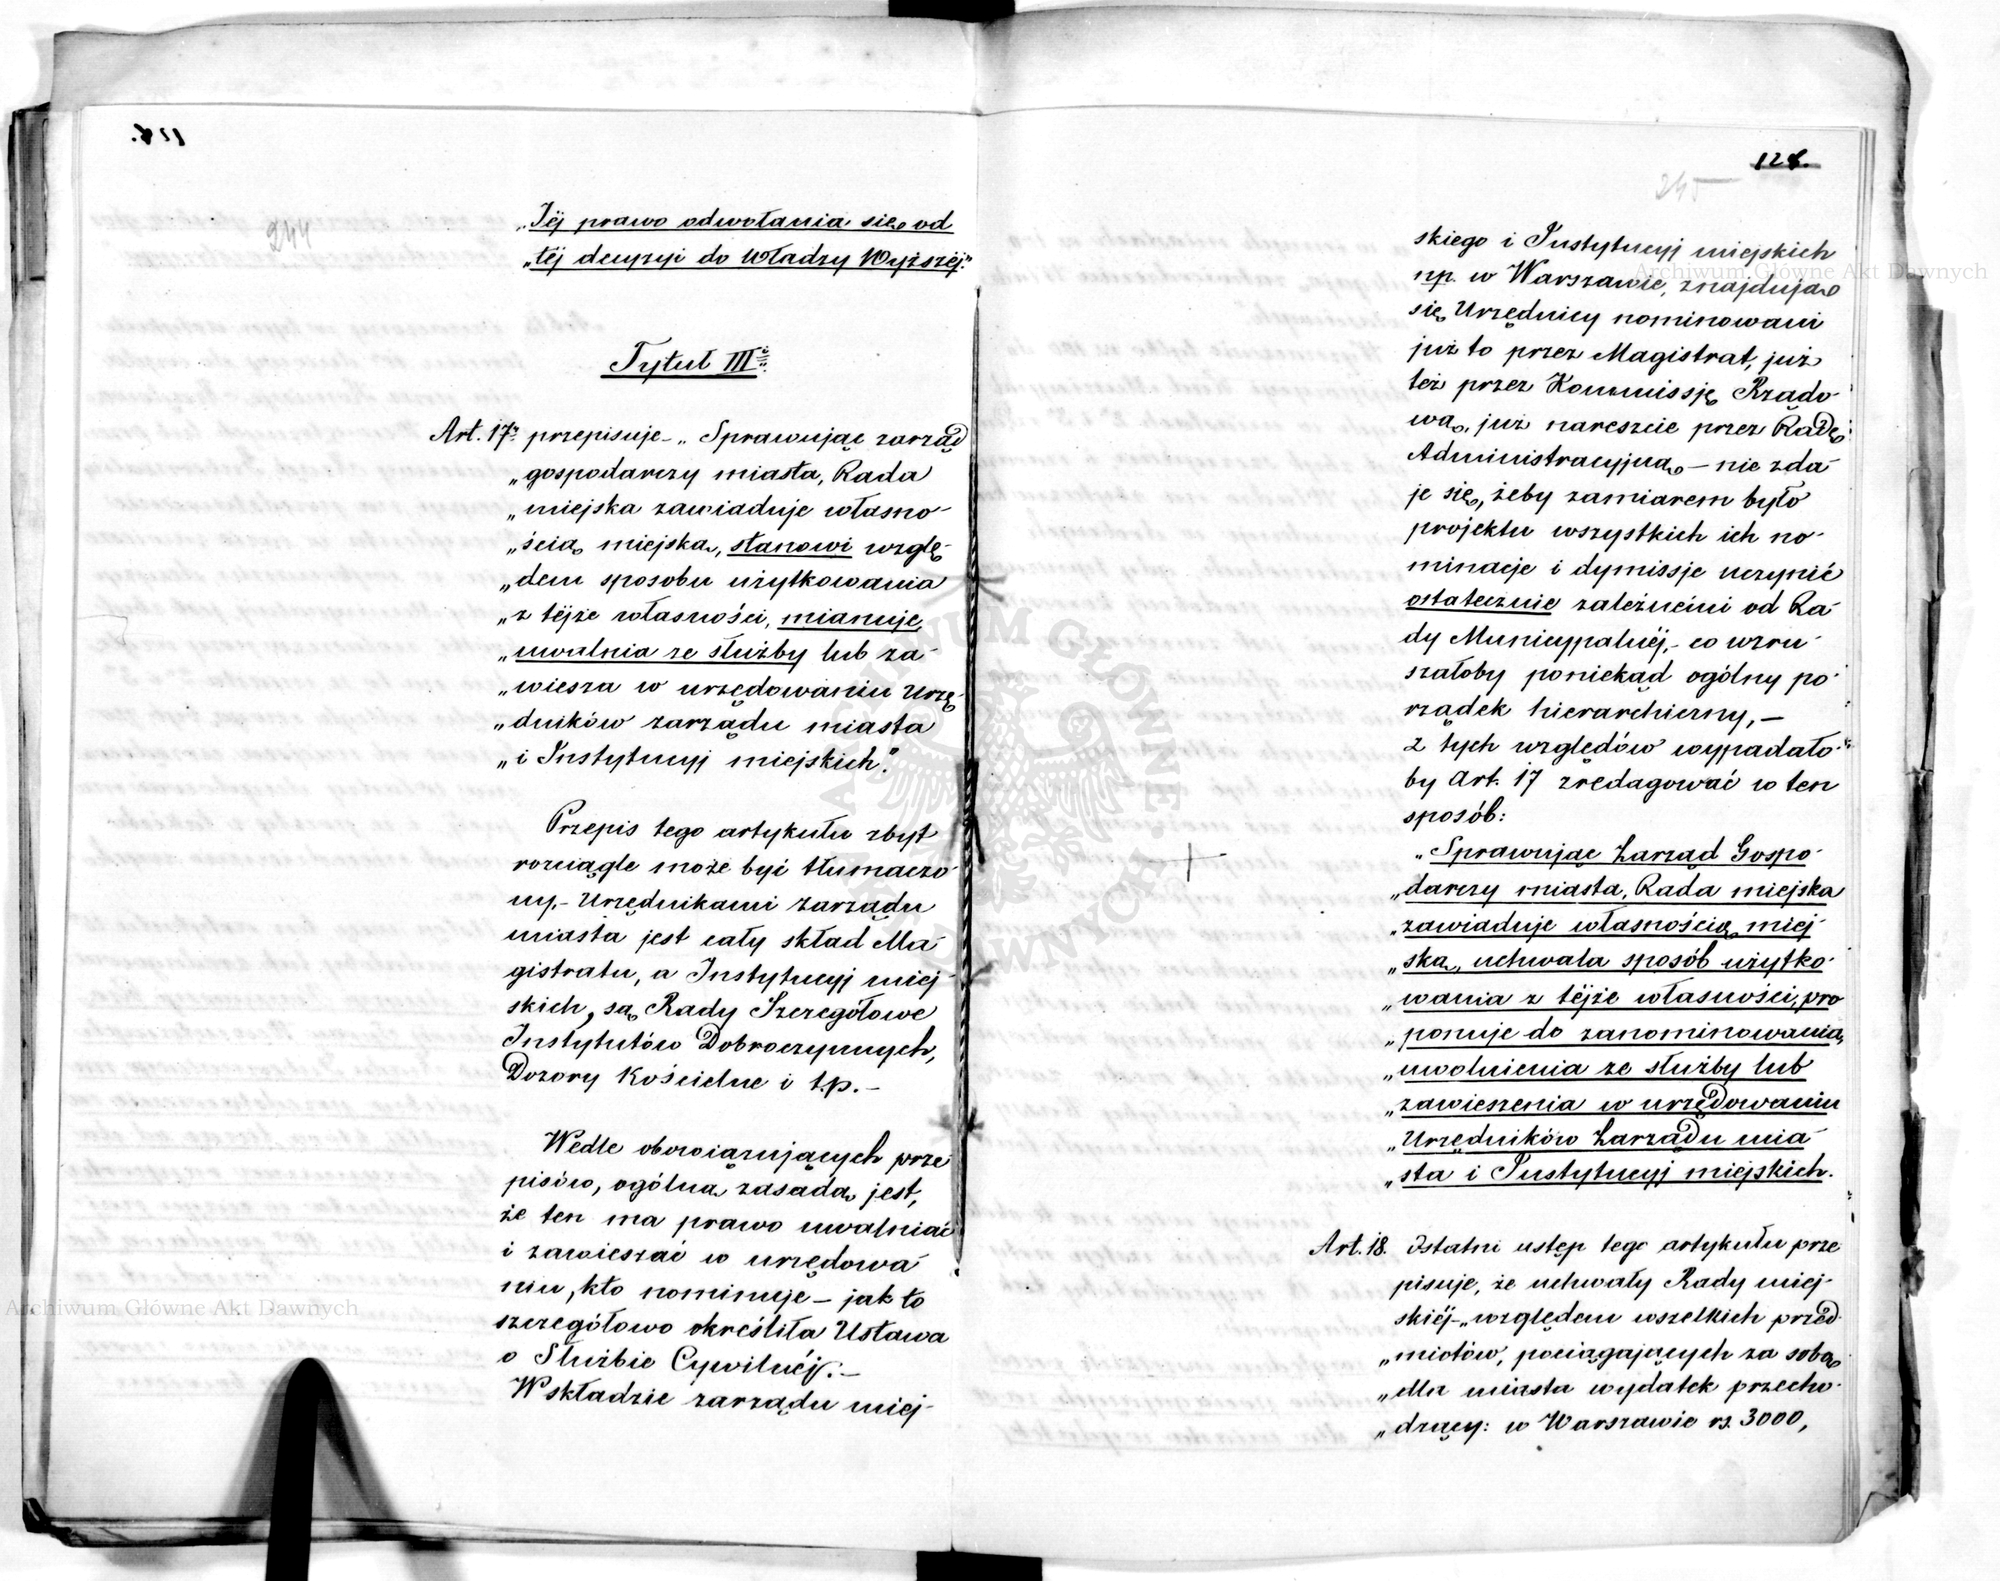 244
„Jéj prawo odwołania się od
„téj decyzyi do Władzy Wyższéj."
Tytuł III
Art. 17. przepisuje – „Sprawując zarząd
„gospodarczy miasta, Rada
„miejska zawiaduje własno-
„ścią miejską, stanowi wzglę-
„dem sposobu użytkowania
„z téjże własności, mianuje,
„uwalnia ze służby lub za-
„wiesza w urzędowaniu Urzę-
„dników zarządu miasta
„i Instytucyj miejskich."
Przepis tego artykułu zbyt
rozciągle może być tłumaczo-
ny. – Urzędnikami zarządu
miasta jest cały skład Ma-
gistratu, a Instytucyj miej-
skich, są Rady Szczegółowe
Instytutów Dobroczynnych,
Dozory Kościelne i t.p. –
Wedle obowiązujących prze-
pisów, ogólną zasadą jest,
że ten ma prawo uwalniać
i zawieszać w urzędowa-
niu, kto nominuje – jak to
szczegółowo określiła Ustawa
o Służbie Cywilnéj. –
W składzie zarządu miej-
124.
245
skiego i Instytucyj miejskich
np. w Warszawie, znajdują
się Urzędnicy nominowani
już to przez Magistrat, już
też przez Kommissję Rządo-
wą, już nareszcie przez Radę
Administracyjną – nie zda-
je się, żeby zamiarem było
projektu wszystkich ich no-
minacje i dymissje uczynić
ostatecznie zależnemi od Ra-
dy Municypalnéj, – co wzru-
szałoby poniekąd ogólny po-
rządek hierarchiczny, –
Z tych względów wypadało-
by Art. 17 zredagować w ten
sposób:
„Sprawując Zarząd Gospo-
„darczy miasta, Rada miejska
„zawiaduje własnością miej-
„ską, uchwala sposób użytko-
„wania z téjże własności, pro-
„ponuje do zanominowania,
„uwolnienia ze służby lub
„zawieszenia w urzędowaniu
„Urzędników Zarządu mia-
„sta i Instytucyj miejskich.
Art. 18. Ostatni ustęp tego artykułu prze-
pisuje, że uchwały Rady miej-
skiéj – „względem wszelkich przed-
„miotów, pociągających za sobą
„dla miasta wydatek przecho-
„dzący: w Warszawie rs. 3000,
Archiwum Główne Akt Dawnych
Archiwum Główne Akt Dawnych
ARCHIWUM GŁÓWNE AKT DAWNYCH